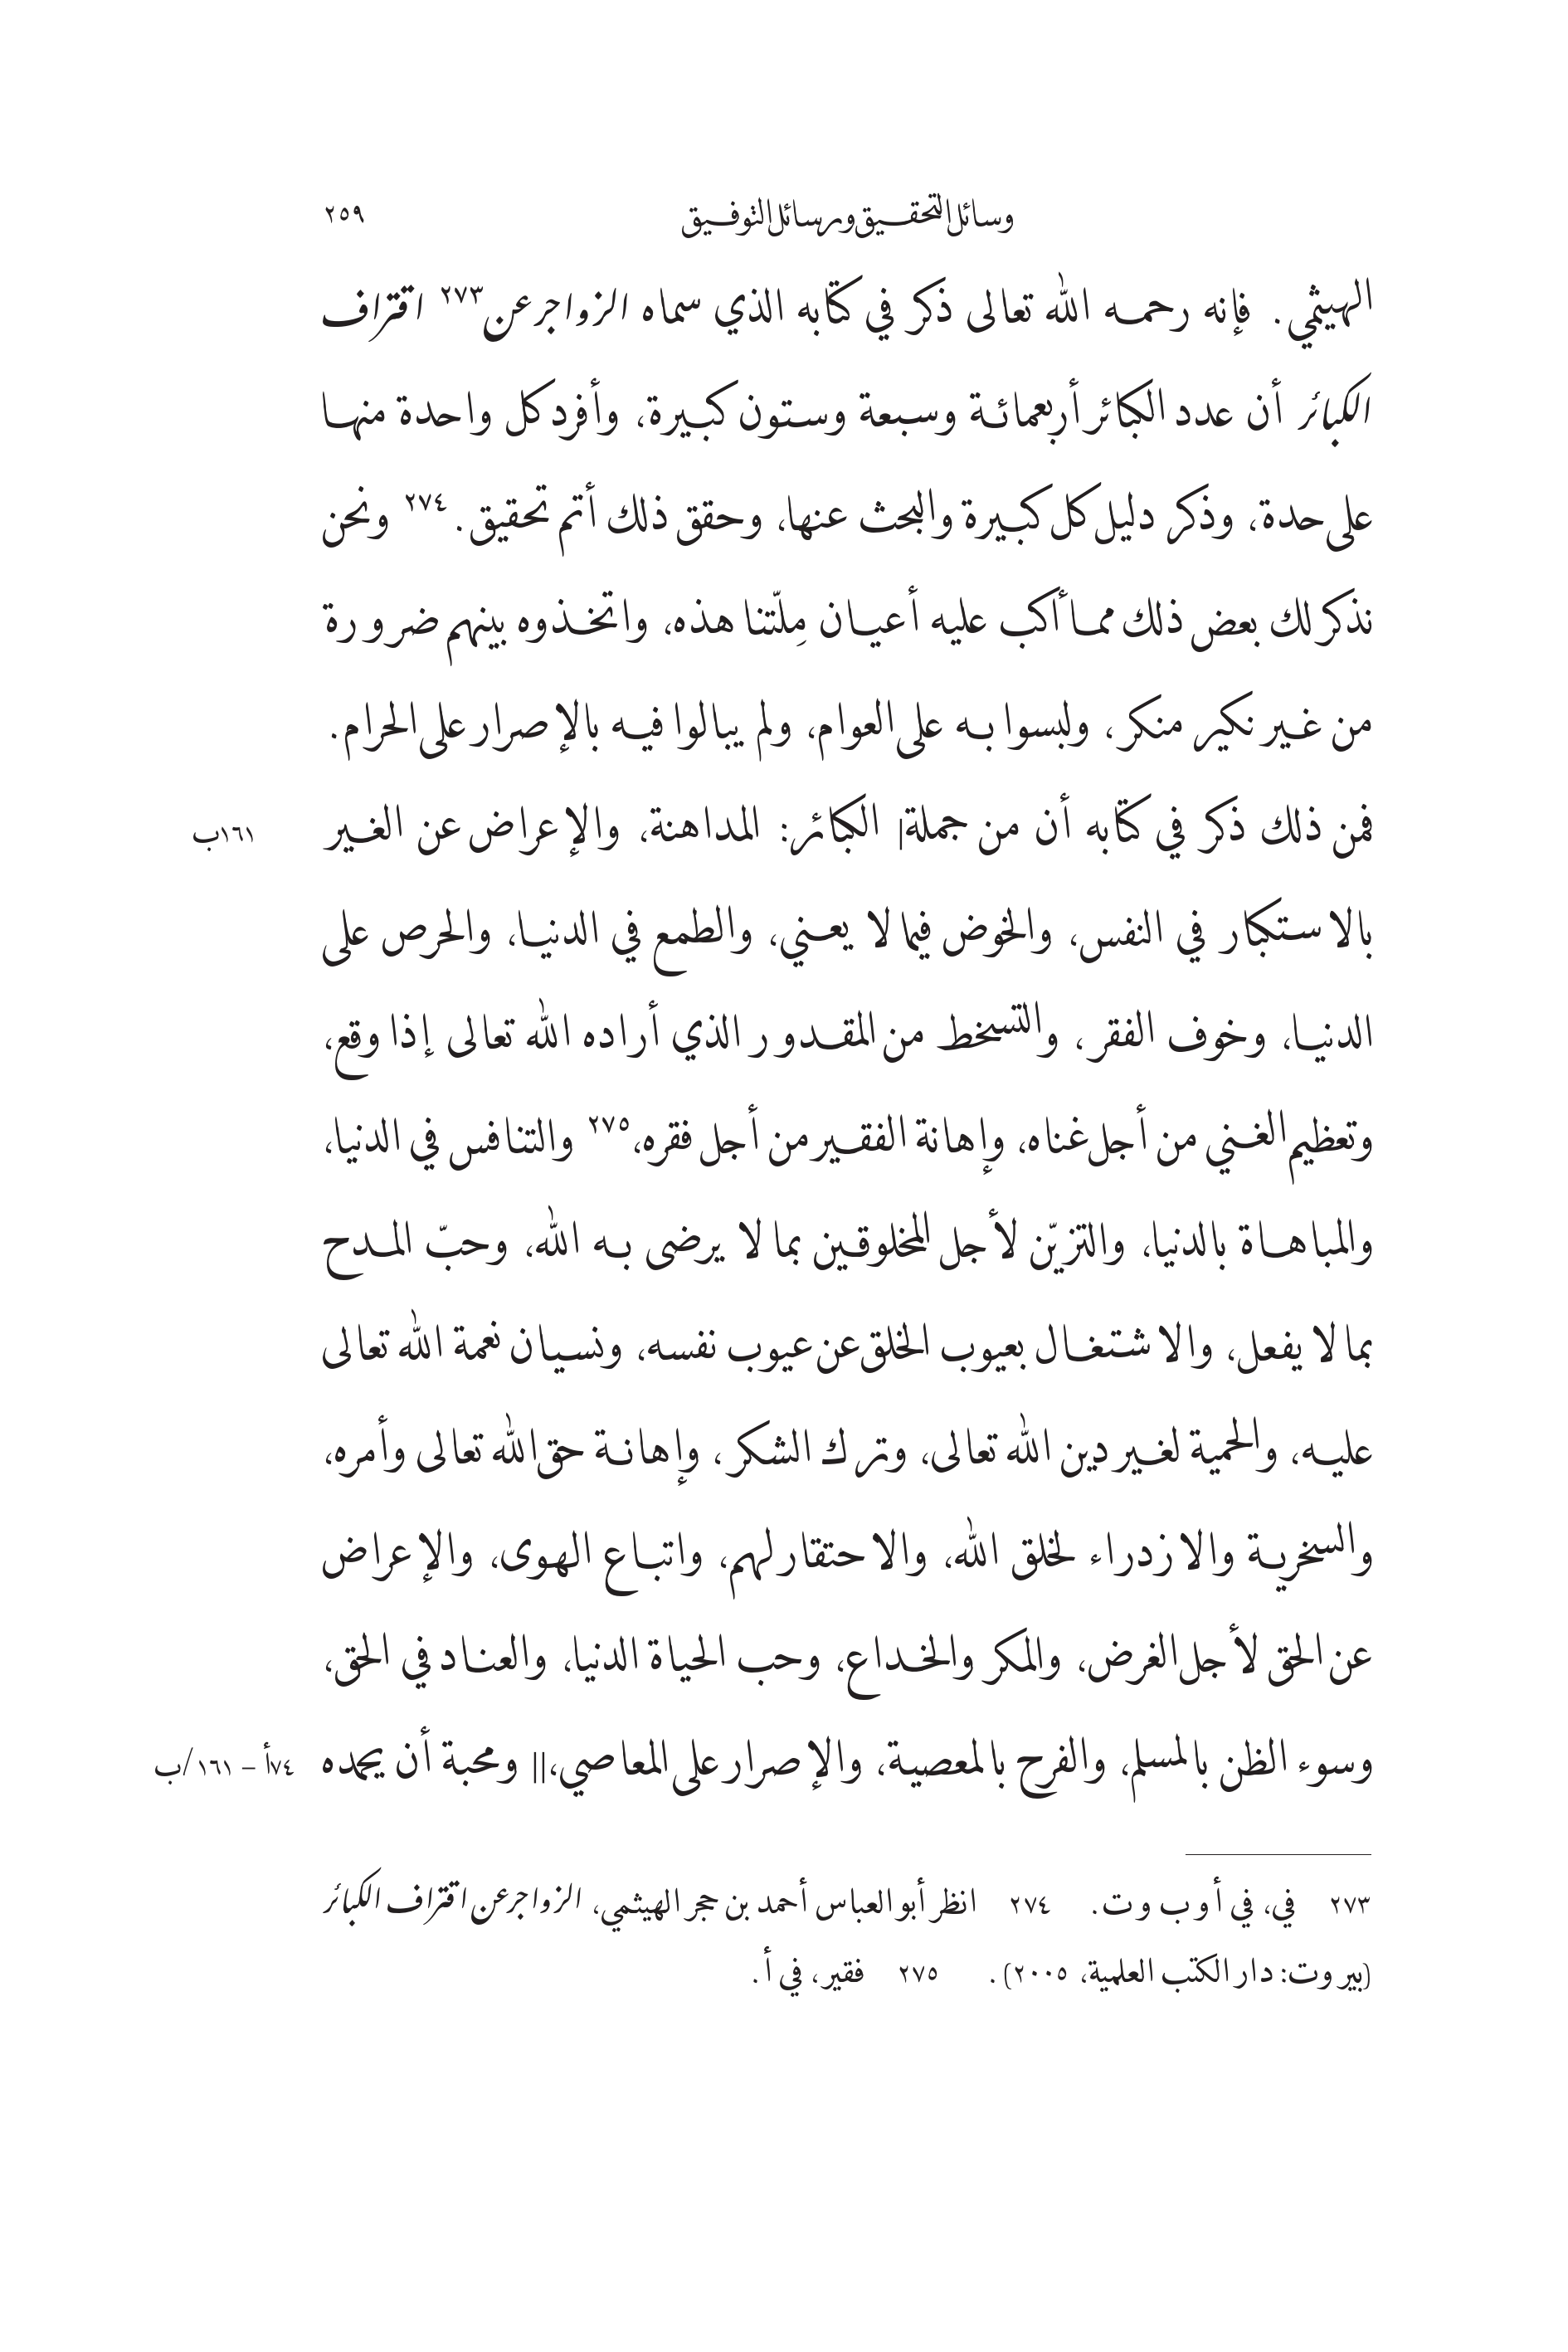 وسائل التحقيق ورسائل التوفيق ٢٥٩
الهيثمي. فإنه رحمه الله تعالى ذكر في كتابه الذي سماه الزواجر عن٢٧٣ اقتراف
الكبائر أن عدد الكبائر أربعمائة وسبعة وستون كبيرة، وأفرد كل واحدة منها
على حدة، وذكر دليل كل كبيرة والبحث عنها، وحقق ذلك أتم تحقيق.٢٧٤ ونحن
نذكر لك بعض ذلك مما أكب عليه أعيان مِلّتنا هذه، واتخذوه بينهم ضرورة
من غير نكير منكر، ولبسوا به على العوام، ولم يبالوا فيه بالإصرار على الحرام.
فمن ذلك ذكر في كتابه أن من جملة| الكبائر: المداهنة، والإعراض عن الغير ١٦١ب
بالاستكبار في النفس، والخوض فيما لا يعني، والطمع في الدنيا، والحرص على
الدنيا، وخوف الفقر، والتسخط من المقدور الذي أراده الله تعالى إذا وقع،
وتعظيم الغني من أجل غناه، وإهانة الفقير من أجل فقره،٢٧٥ والتنافس في الدنيا،
والمباهاة بالدنيا، والتزيّن لأجل المخلوقين بما لا يرضى به الله، وحبّ المدح
بما لا يفعل، والاشتغال بعيوب الخلق عن عيوب نفسه، ونسيان نعمة الله تعالى
عليه، والحمية لغير دين الله تعالى، وترك الشكر، وإهانة حق الله تعالى وأمره،
والسخرية والازدراء لخلق الله، والاحتقار لهم، واتباع الهوى، والإعراض
عن الحق لأجل الغرض، والمكر والخداع، وحب الحياة الدنيا، والعناد في الحق،
وسوء الظن بالمسلم، والفرح بالمعصية، والإصرار على المعاصي،|| ومحبة أن يحمده ٧٤أ – ١٦١/ب
٢٧٣ في، في أ و ب و ت. ٢٧٤ انظر أبو العباس أحمد بن حجر الهيثمي، الزواجر عن اقتراف الكبائر
(بيروت: دار الكتب العلمية، ٢٠٠٥). ٢٧٥ فقير، في أ.